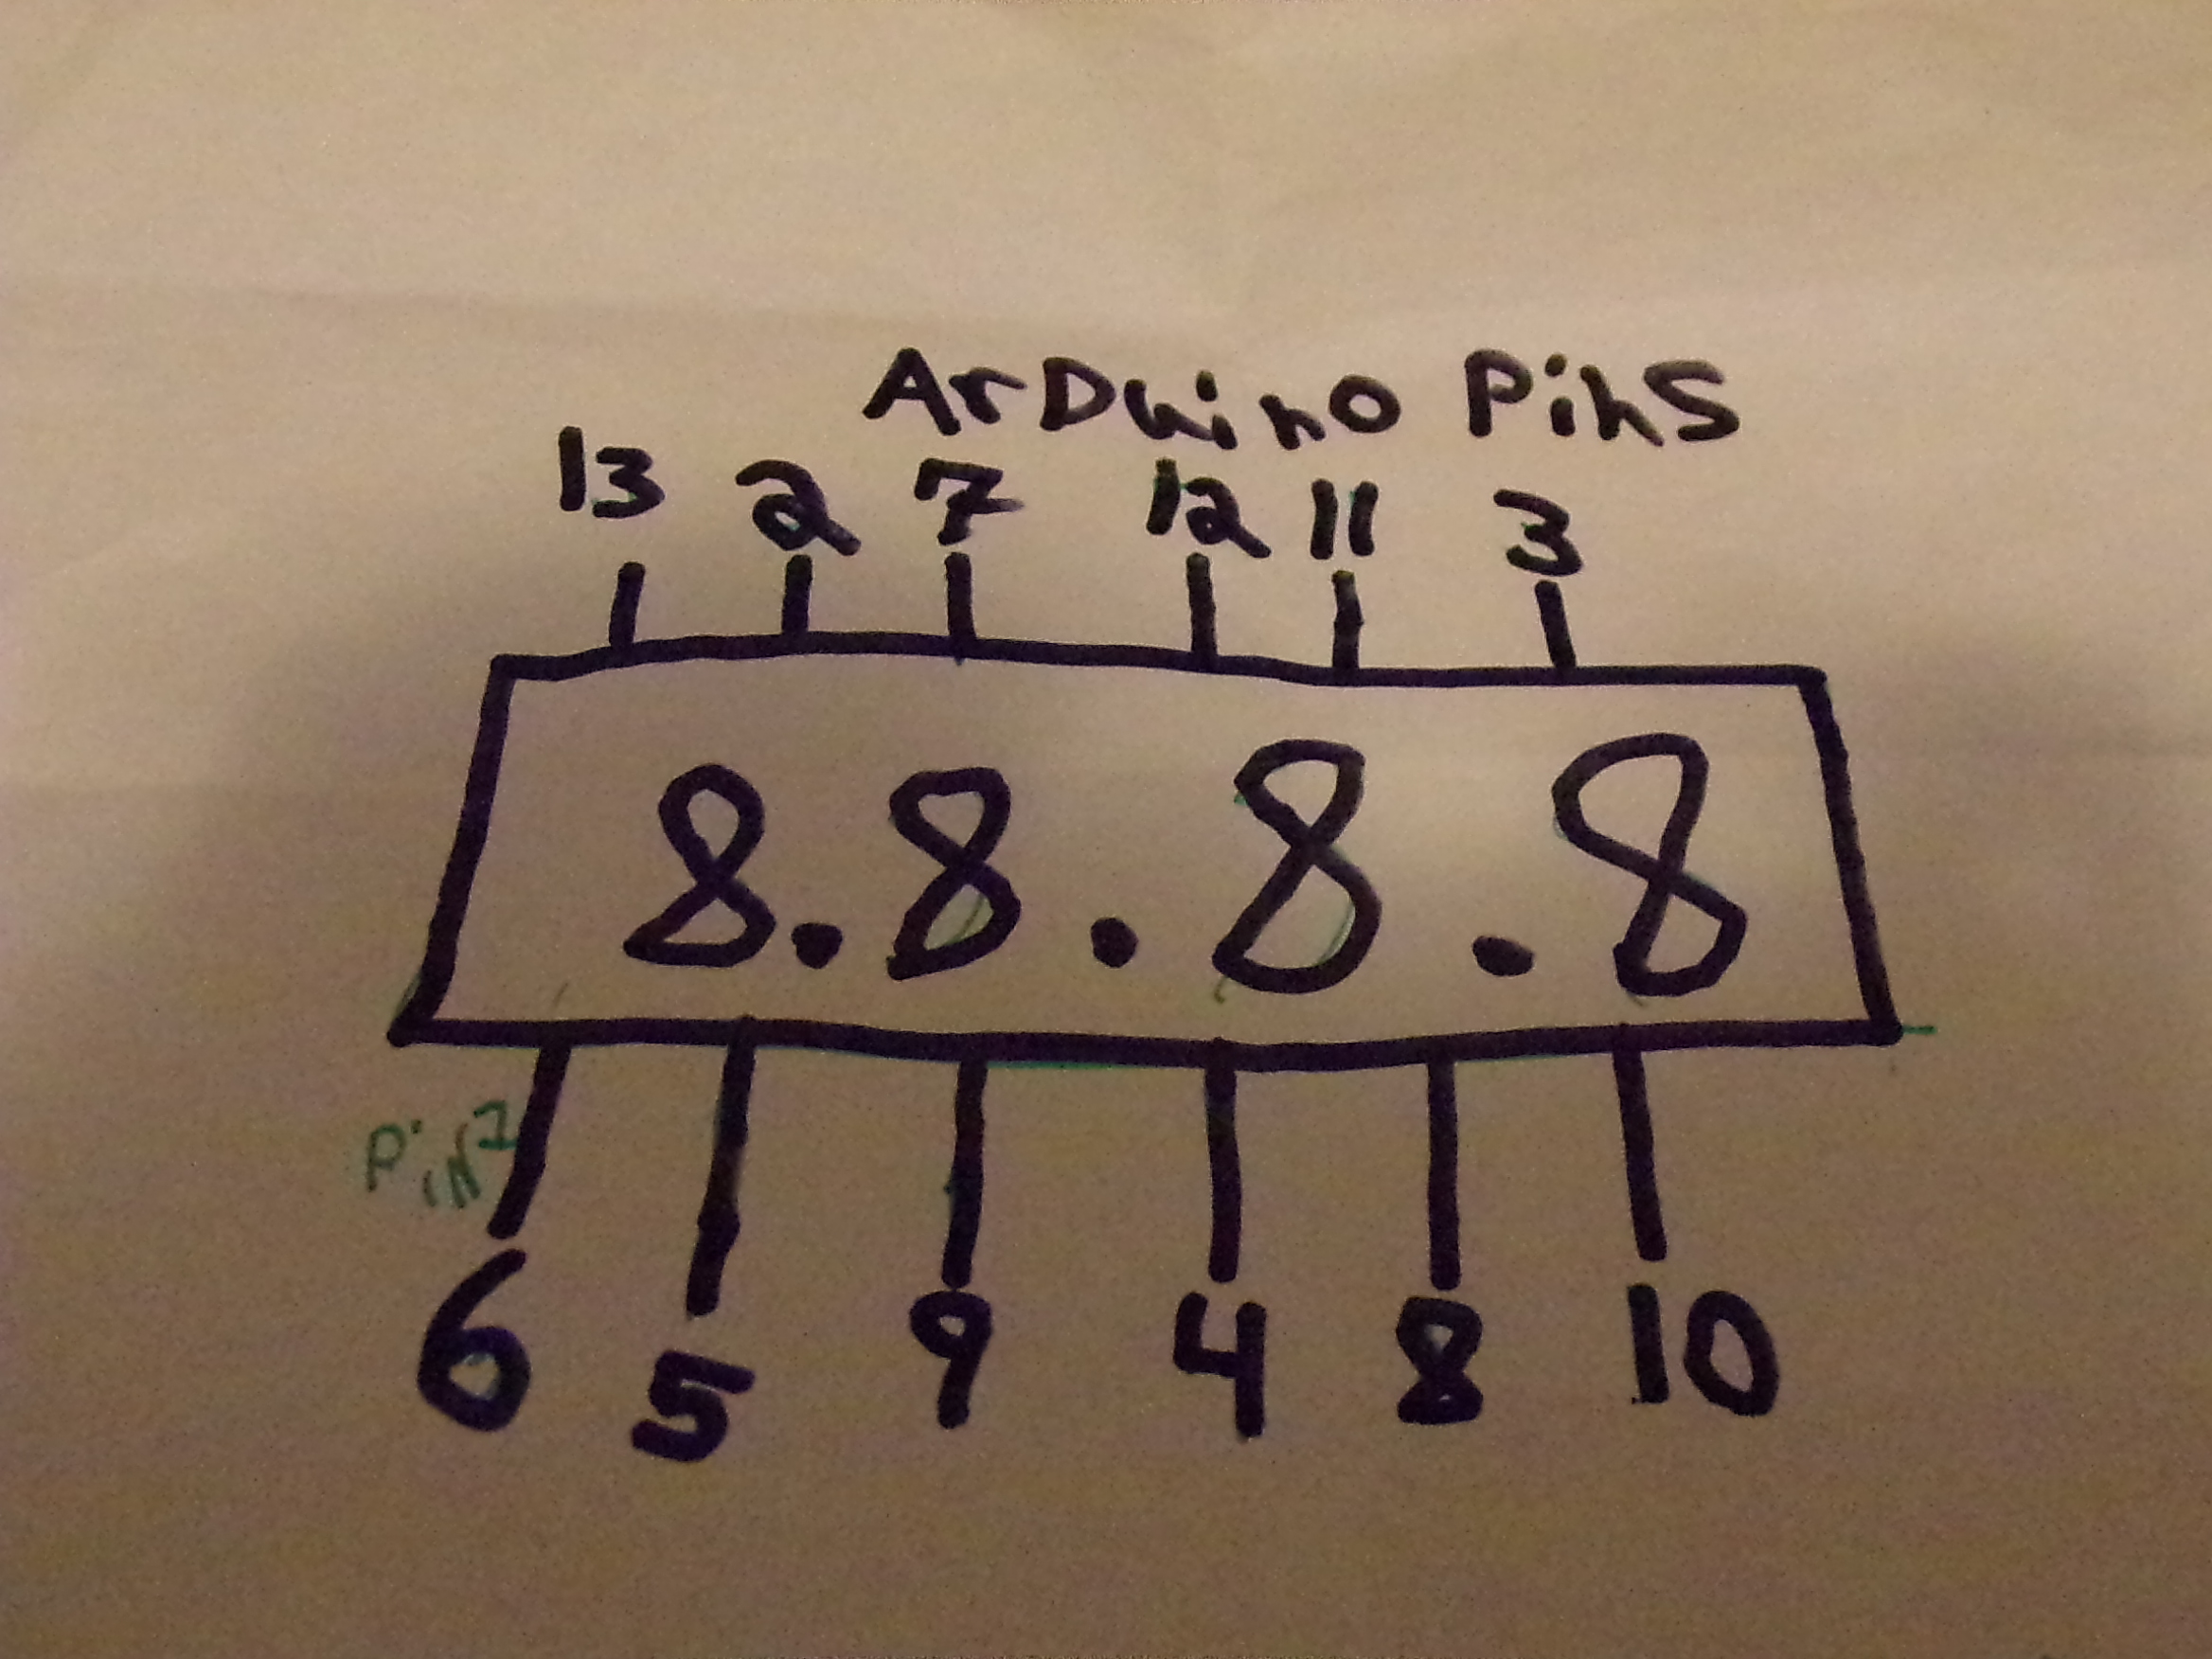 ArDuino PinS
13 2 7 12 11 3
8.8.8.8
PiN1
6 5 9 4 8 10